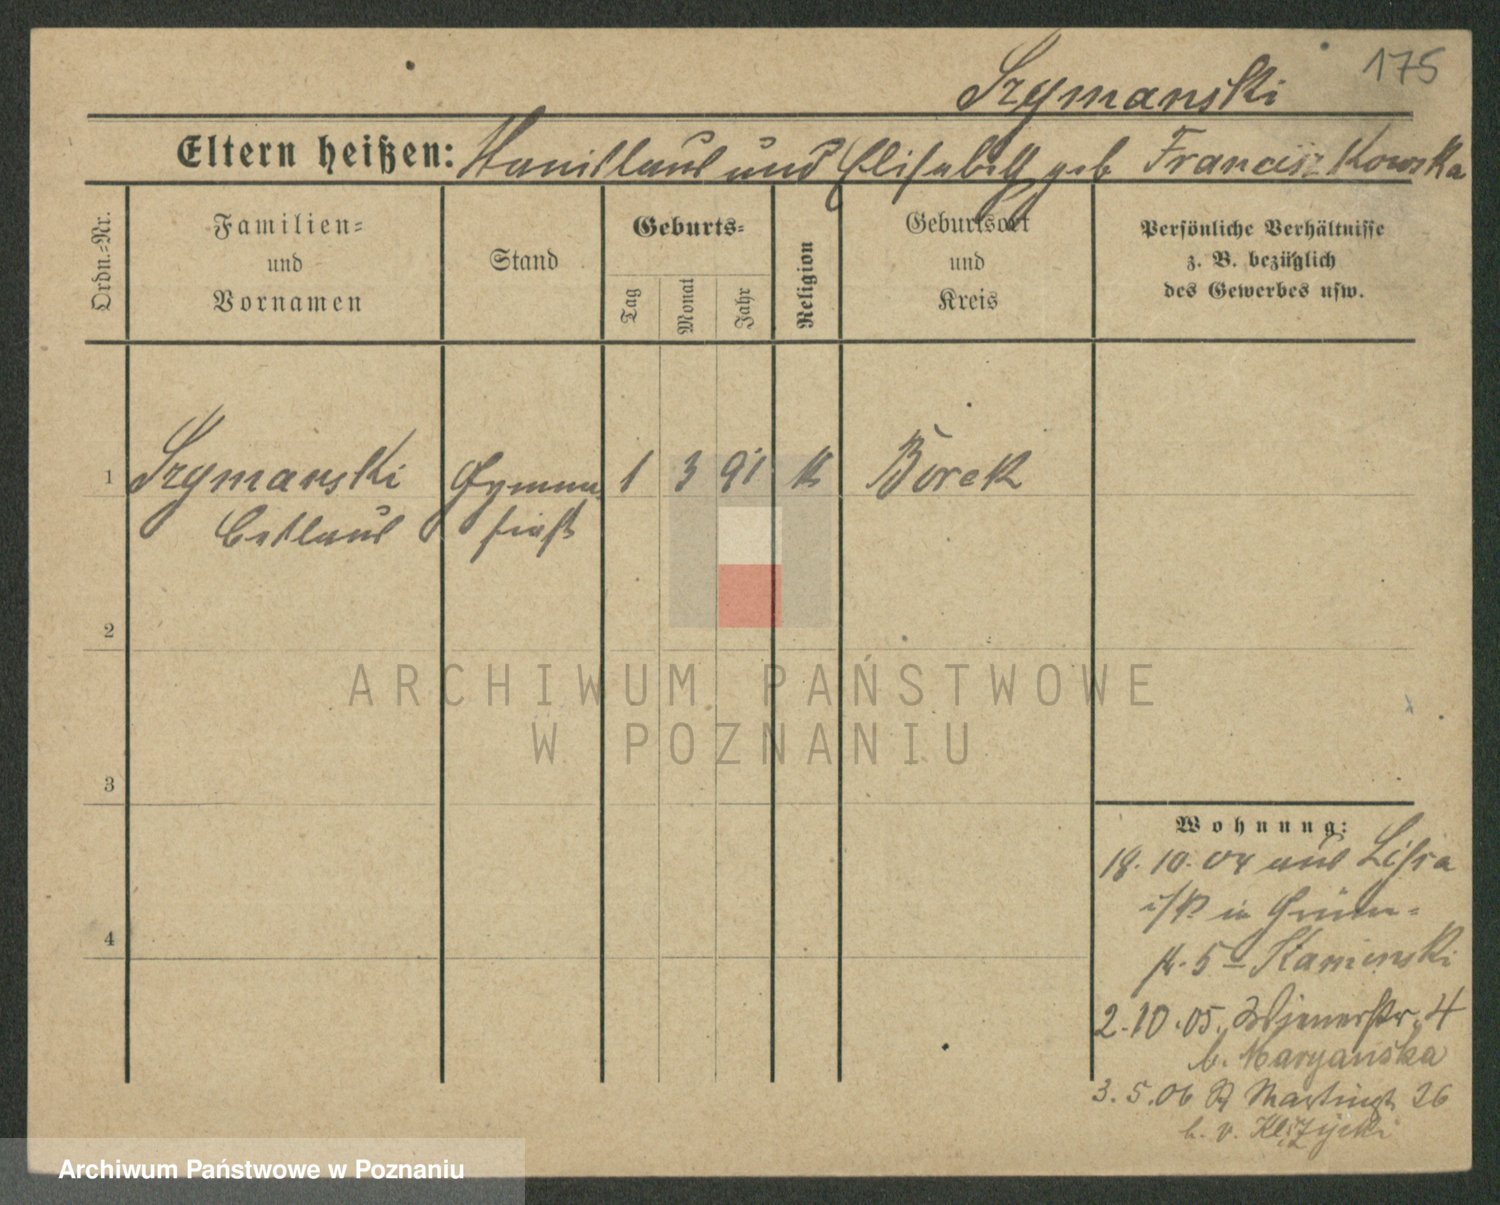 175
Szymanski
Eltern heißen: Stanislaus und Elisabeth geb Franciszkowska
Ordn.=Nr.
Familien=
und
Vornamen
Stand
Geburts=
Tag
Monat
Jahr
Religion
Geburtsort
und
Kreis
Persönliche Verhältnisse
z. B. bezüglich
des Gewerbes usw.
1 Szymanski Gymna 1 3 91 k Borek
Ceslaus siast
2
3
4
Wohnung:
18.10.04 aus Lissa
i/P in Grün=
str. 5 – Kamienski
2.10.05. Wienerstr. 4
b. Maryanska
3.5.06 St Martinstr 26
b. v.
ARCHIWUM PAŃSTWOWE
W POZNANIU
Archiwum Państwowe w Poznaniu